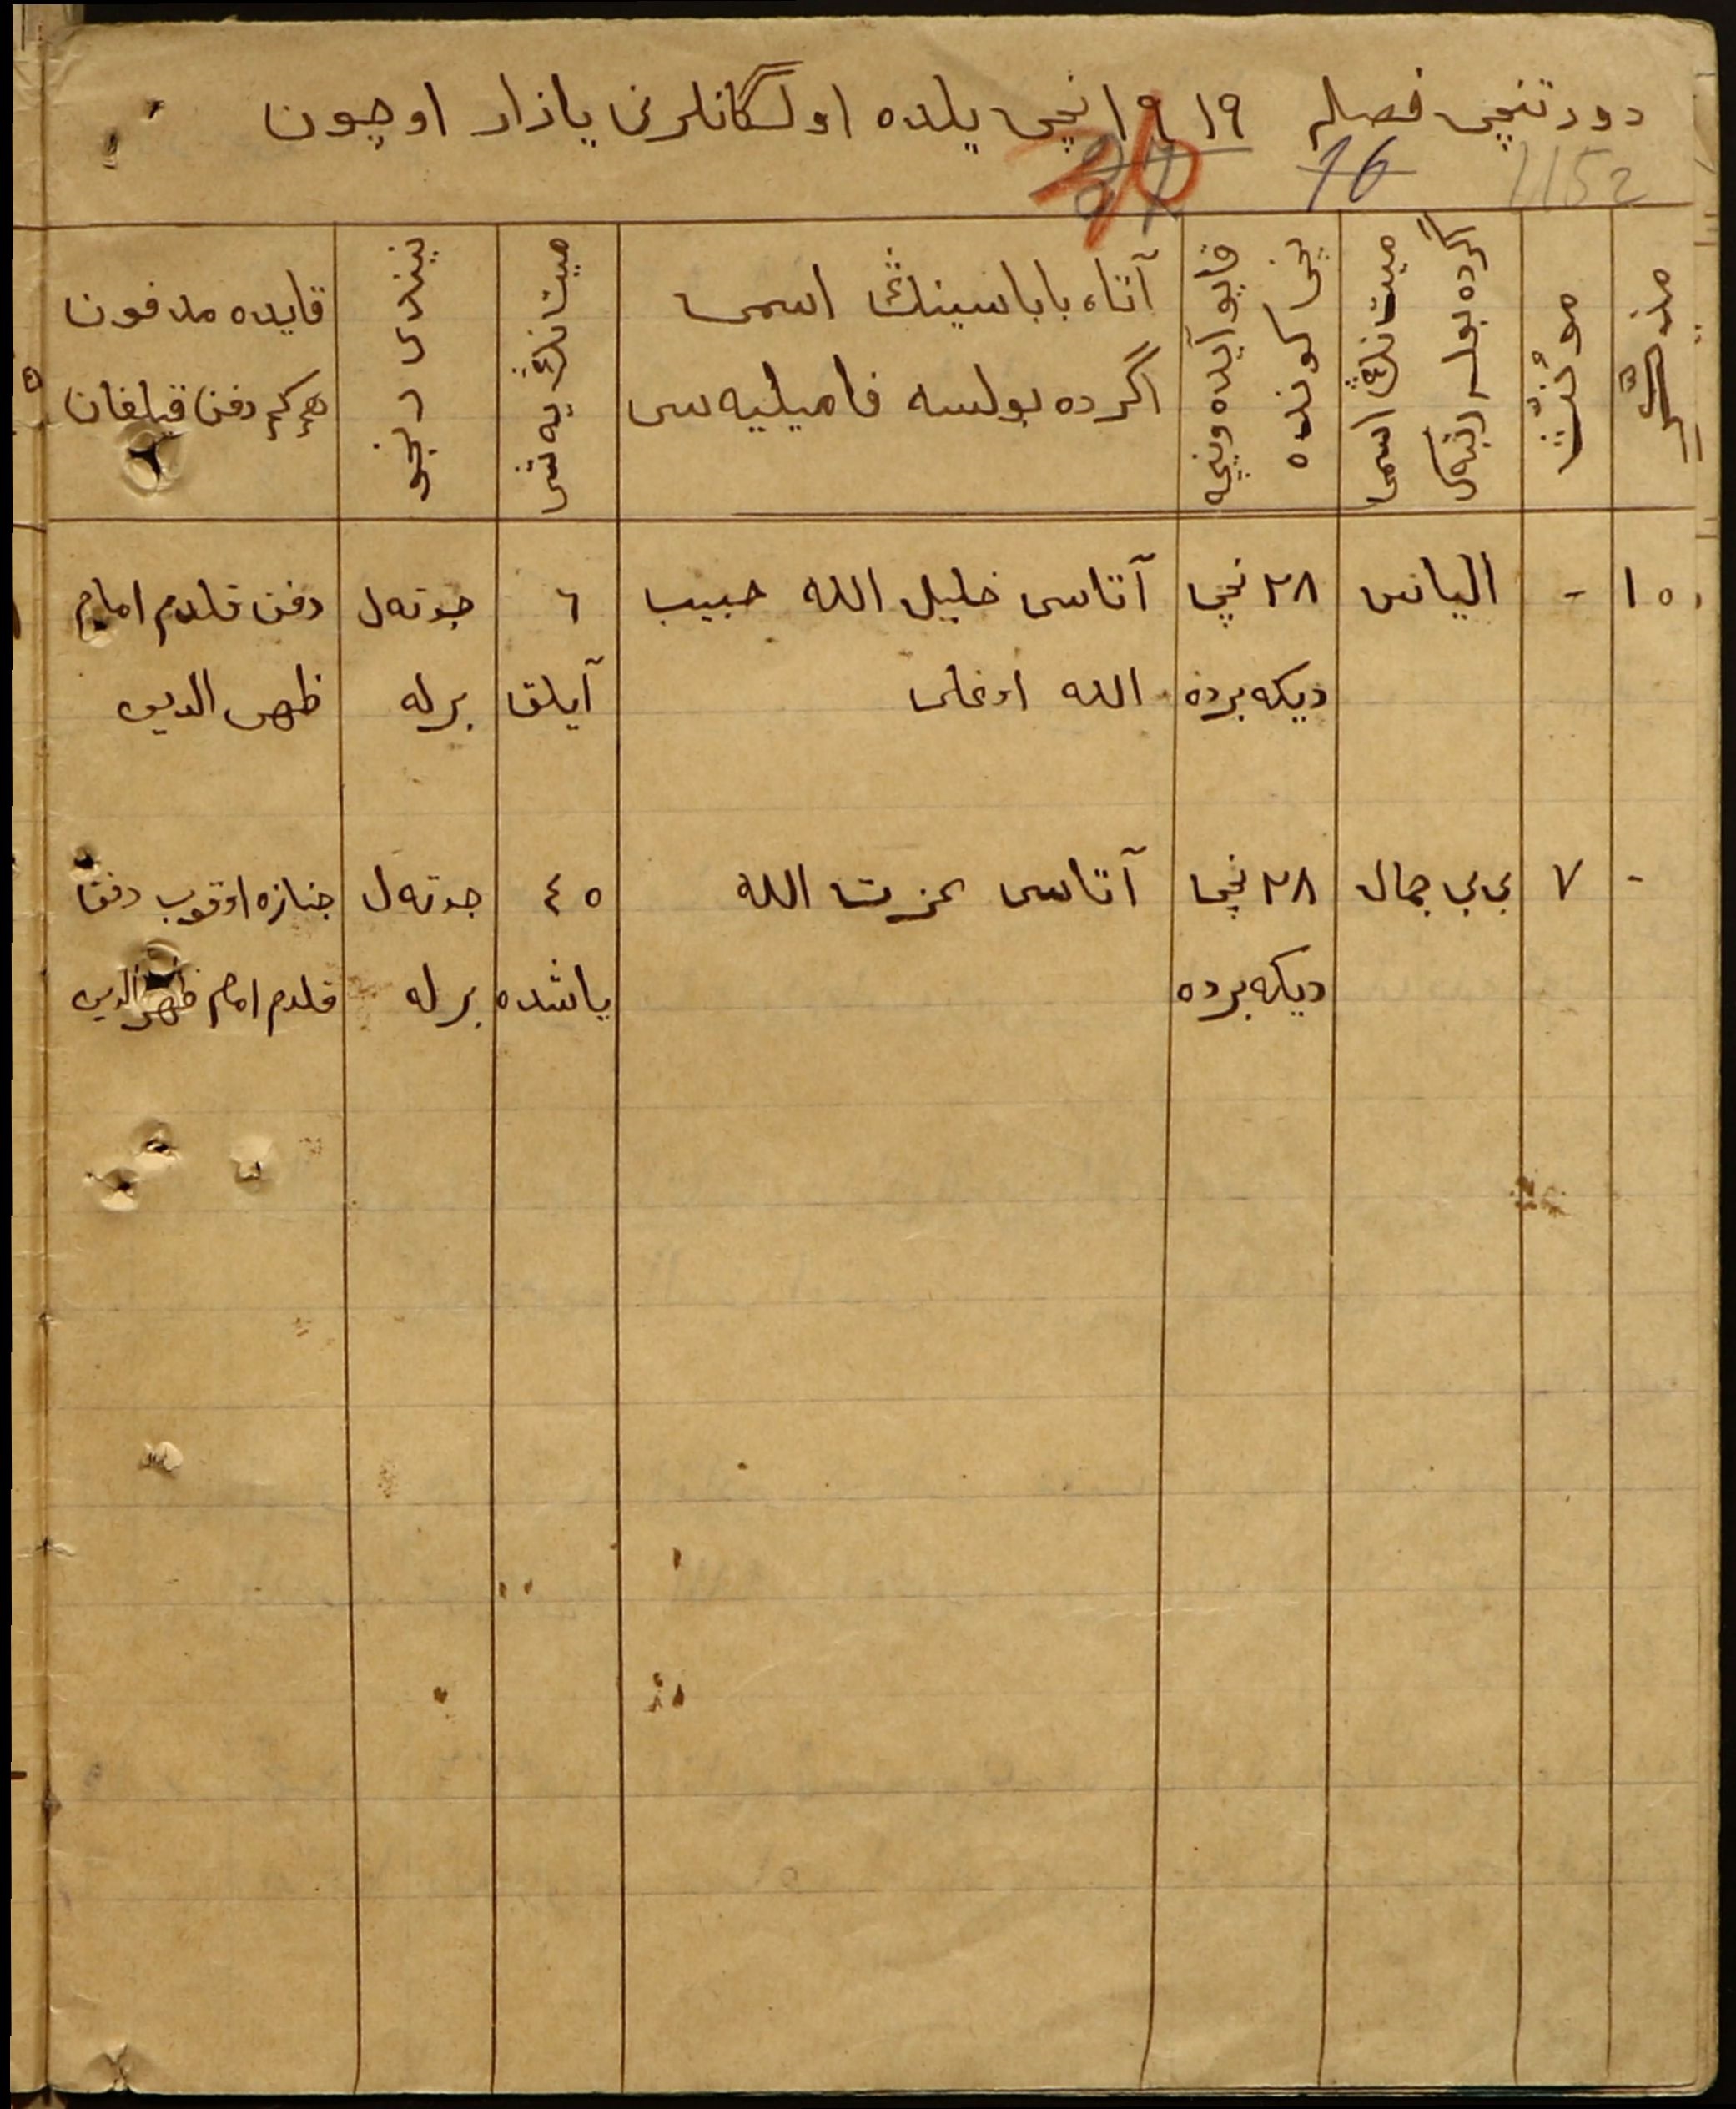 دورتنچی فصل ١٩١٩ نچی یلده اولگانلرنی یازار اوچون
16
1152
مذکّر
مونّث
میت ننڭ اسمی
اگرده بولسه رتبه‌سی
قایو آیده ونیچه
نچی کونده
آتا، باباسینڭ اسمی
اگرده بولسه فامیلیه سی
میت ننڭ یه شی
نیندی رنجو
قایده مدفون
هم کم دفن قیلغان
١٥
-
الیاس
٢٨ نچی
دیکه برده
آتاسی خلیل الله حبیب
الله اوغلی
٦
آیلق
جوتەل
برله
دفن قلدم امام
ظهر الدین
-
٧
بی بی جمال
٢٨ نچی
دیکه برده
آتاسی عزت الله
٤٥
یاشده
جوتەل
برله
جنازه اوقوب دفن
قلدم امام ظهر الدین